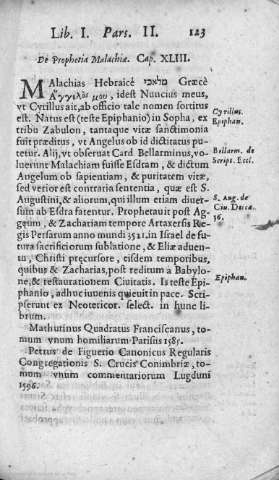 Lib. I. Pars. II. 123
De Prophetia Malachiæ. Cap. XLIII.
MAlachias Hebraicè מלאכי Græcè
Αγγελος μου, idest Nuncius meus,
vt Cyrillus ait, ab officio tale nomen sortitus
est. Natus est (teste Epiphanio) in Sopha, ex
tribu Zabulon, tantaque vitæ sanctimonia
fuit præditus, vt Angelus ob id dictitatus pu-
tetur. Alij, vt obseruat Card. Bellarminus, vo-
luerunt Malachiam fuisse Esdram, & dictum
Angelum ob sapientiam, & puritatem vitæ,
sed verior est contraria sententia, quæ est S.
Augustini, & aliorum, qui illum etiam diuer-
sum ab Esdra fatentur. Prophetauit post Ag-
geum, & Zachariam tempore Artaxersis Re-
gis Persarum anno mundi 3521. in Israel de fu-
tura sacrificiorum sublatione, & Eliæ aduen-
tu, Christi præcursore, eisdem temporibus,
quibus & Zacharias, post reditum a Babylo-
ne, & restaurationem Ciuitatis. Is teste Epi-
phanio, adhuc iuuenis quieuit in pace. Scri-
pserunt ex Neotericor. select. in hunc li-
brum.
Mathutinus Quadratus Franciscanus, to-
mum vnum homiliarum Parisiis 1585.
Petrus de Figuerio Canonicus Regularis
Congregationis S. Crucis Conimbriæ, to-
mum vnum commentariorum Lugduni
1596.
Cyrillus.
Epiphan.
Bellarm. de
Script. Eccl.
S. Aug. de
Ciu. Dei ca.
36.
Epiphan.